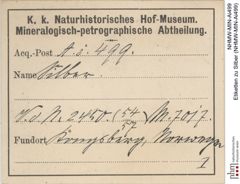 K. k. Naturhistorisches Hof-Museum.
Mineralogisch-petrographische Abtheilung.
Acq.-Post A. i. 499.
Name Silber.
V. d. N. 2450. (54/ M. 7017.
Fundort Kongsberg, Norwegen
1
NHMW-MIN-Ai499
Etiketten zu Silber (NHMW-MIN-Ai499)
nhm